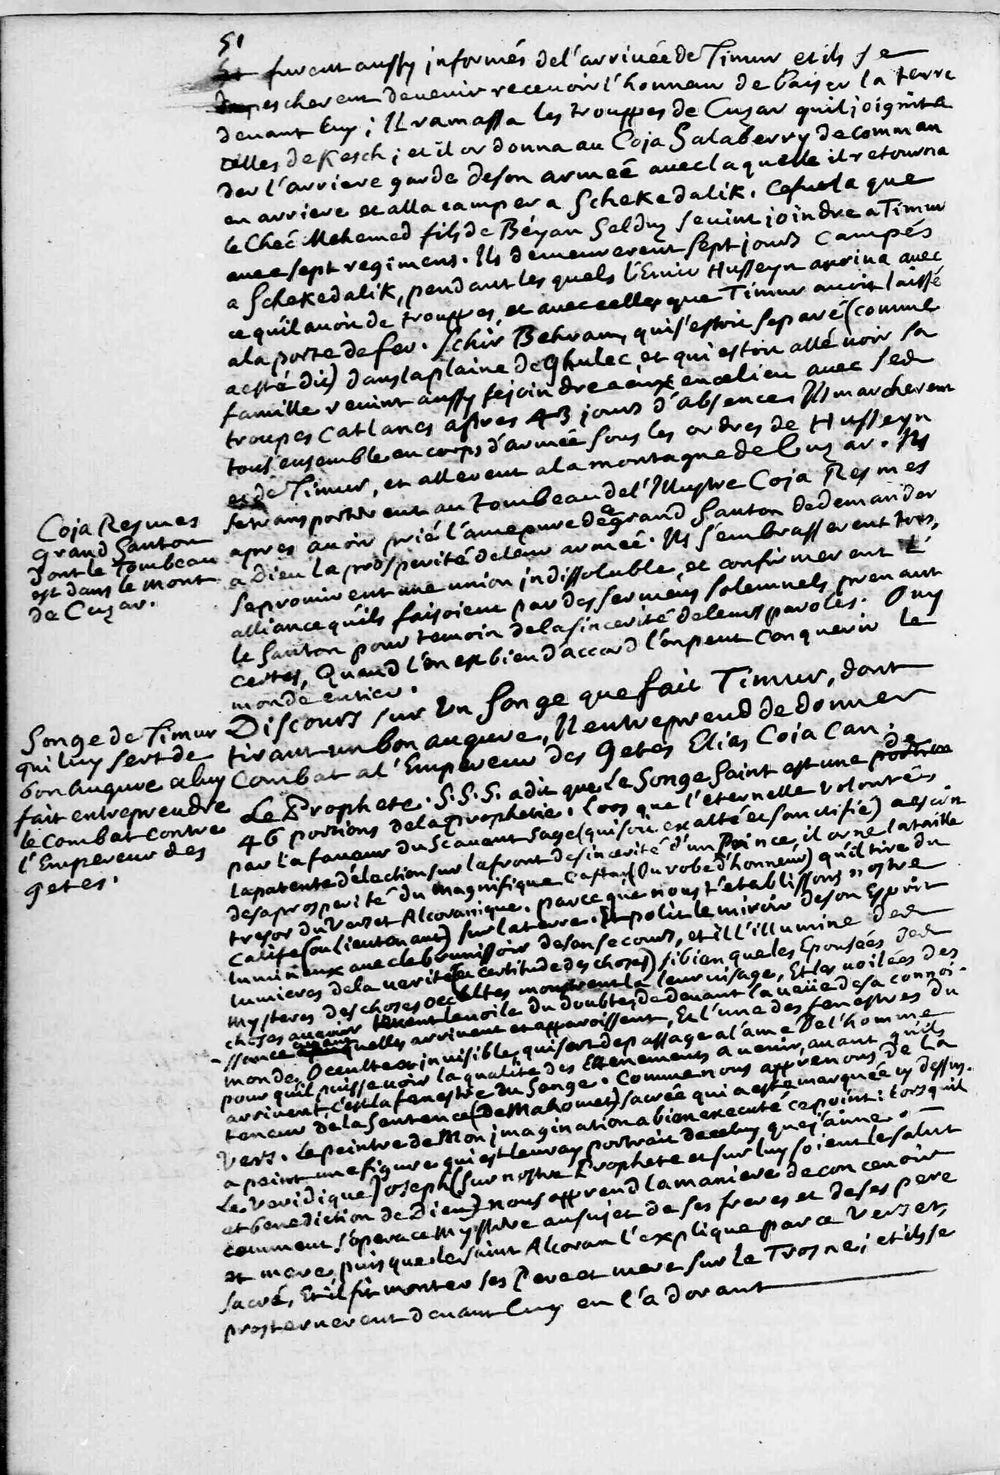 51
furent aussy informés de l'arrivée de Timur et ils se
depescherent de venir recevoir l'honneur de baiser la terre
devant luy ; Il ramassa les trouppes de Cuzar quil joignit a
celles de Kesch ; et il ordonna au Coja Salaberry de comman
der l'arriere garde de son armée avec laquelle il retourna
en arriere et alla camper a Schekedalik. Ce fut la que
le Cheé Mehemed fils de Béyan Selduz se vint joindre a Timur
avec sept regimens. Ils demeurerent sept jours campés
a Schekedalik, pendant lesquels l'Emir Husseyn arriva avec
ce qu'il avoit de trouppes, et avec celles que Timur avoit laissé
a la porte de fer. Schir Behram, qui s'estoit separé (comme
a esté dit) dans la plaine de Ghulec, et qui estoit allé voir sa
famille revint aussy se joindre a eux en ce lieu avec ses
troupes Catlanes apres 43 jours d'absence. Ils marcherent
tous ensemble en corps d'armée sous les ordres de Husseyn
et de Timur, et allerent a la montagne de Cuzar. Ils
se transporterent au Tombeau de l'Illustre Coja Resmes
apres avoir prié l'ame pure de ce grand Santon de demander
a Dieu la prosperité de leur armée. Ils s'embrasserent tous,
se promirent une union indissoluble, et confirmerent L'
alliance qu'ils faisoient par des sermens solemnels prenant
le Santon pour temoin de la sincerité de leurs paroles. Ouy
certes, Quand l'on est bien d'accord l'on peut conquerir le
monde entier.
Coja Resmes
grand Santon
dont le Tombeau
est dans le mont
de Cuzar.
Discours sur un Songe que fait Timur, dont
tirant un bon augure, Il entreprend de donner
Combat a l'Empereur des Getes Elias Coja Can.
Songe de Timur
qui luy sert de
bon augure a luy
fait entreprendre
le combat contre
l'Empereur des
getes.
Le Prophete. S.S.S. a dit que le Songe Saint est une de
46 portions de la prophetie. Lors que l'eternelle volonté
par la faveur du Scavant Sage (qui soit exalté et sanctifié) a escrit
la patente d'élection sur le front de sincerité d'un Prince, il orne la taille
de sa prosperité du magnifique Caftan (Ou robe d'honneur) qu'il tire du
tresor du Verset Alcoranique. parce que nous t'etablissons nostre
Calife (ou lieutenant) sur la terre. Il polit le miroir de son Esprit
lumineux avec le brunissoir de son secours, et il l'illumine des
lumieres de la verité (et certitude des choses) si bien que les Epousées des
mysteres des choses occultes montrent la leur visage, Et les voilées des
choses levent le voile du doubte, de devant la veüe de sa connoi-
-ssance quelles arrivent et apparoissent, Et l'une des fenestres du
monde Occulte et invisible, qui sert de passage a l'ame de l'homme
pour qu'il puisse voir la qualité des Evenements a venir, avant qu'ils
arrivent, c'est la fenestre du Songe. Comme nous apprenons de la
teneur de la Sentence (De Mahomet) sacrée qui a esté marquée cy dessus.
Vers. Le peintre de Mon imagination a bien executé ce point : lorsquil
a peint une figure qui est le vray portrait de celuy que j'aime.
Le Veridique Joseph (sur nostre Prophete et sur luy soient le salut
et benediction de Dieu) nous apprend la maniere de concevoir
comment s'opera ce Mystere au sujet de ses freres et de ses pere
et mere, puis que le saint Alcoran l'explique par ce Verset
sacré, Et il fit monter ses Pere et mere sur le Trosne ; et ils se
prosternerent devant luy en l'adorant